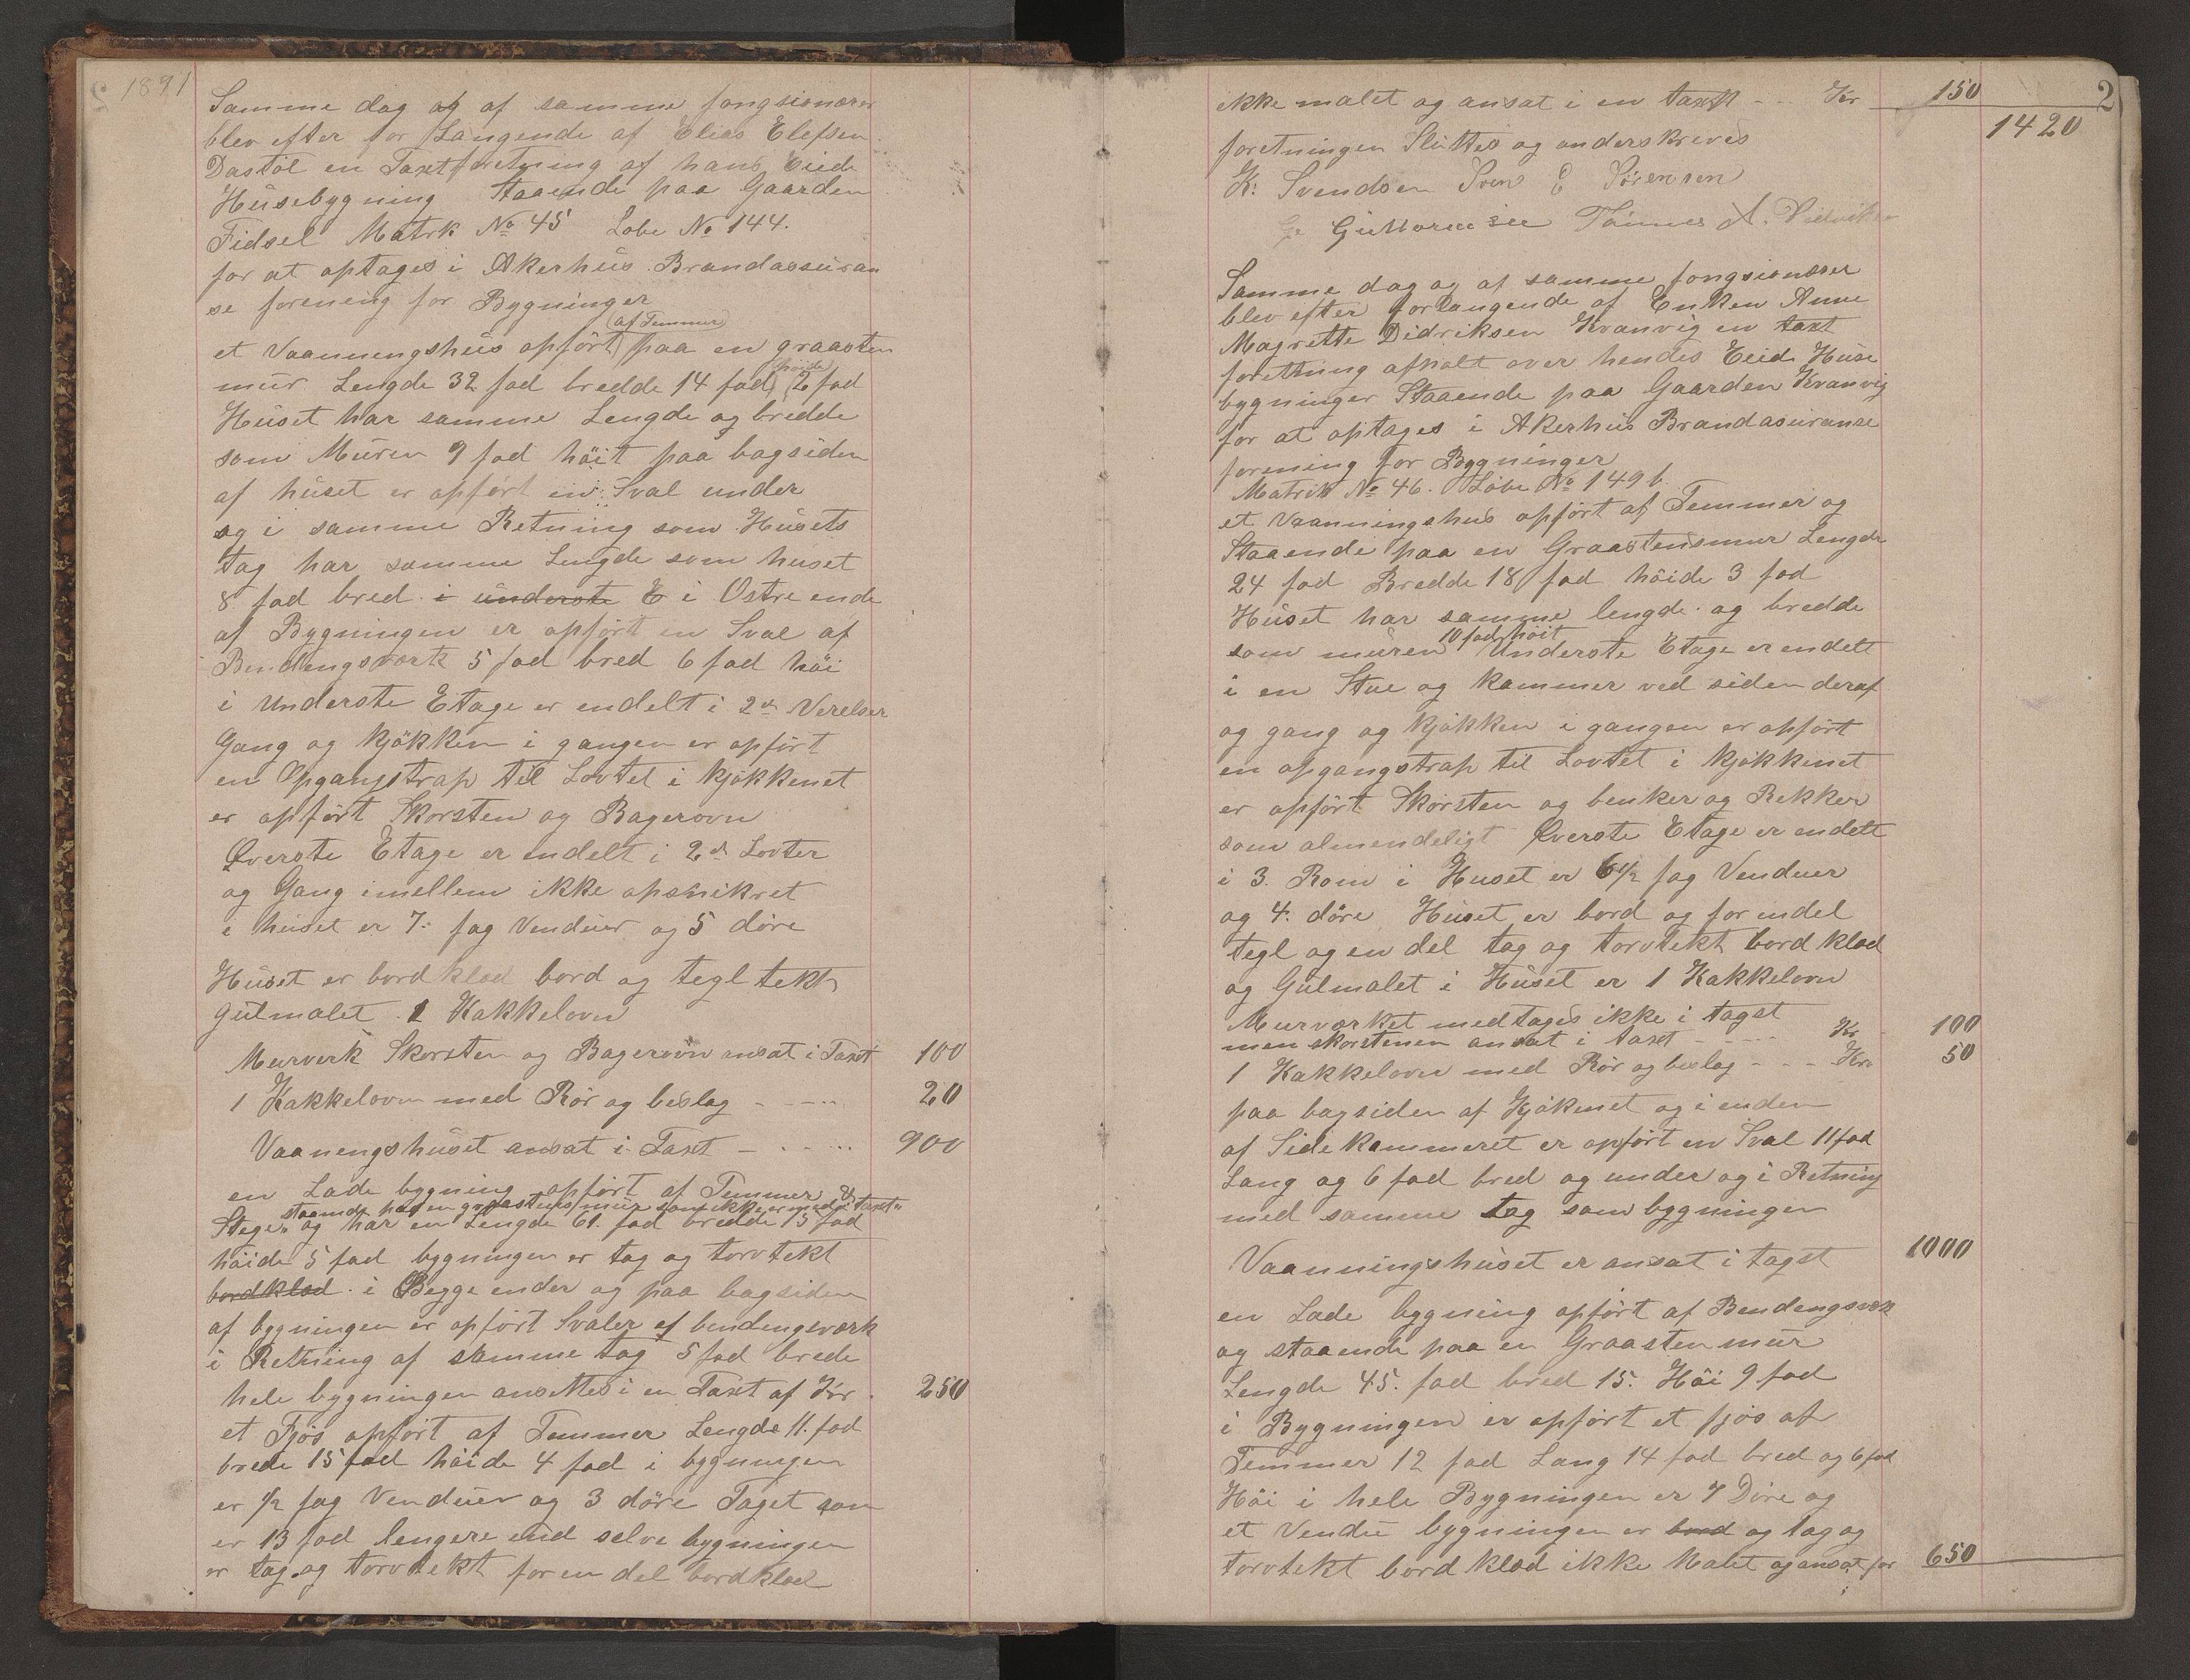 1891
Samme dag og af samme fongsionærer
blev efter for Langende af Elias Elefsen
Dastöl en Taxtforetning af hans Eiede
Husebygning Staaende paa Gaarden
Fidsel Matrk No 45 Lobe No 144.
for at optages i Akerhus Brandassuran
se forening for Bygninger
(af Temmer)
et Vaanningshus opfört paa en graasten
høide
mur Lengde 32 fod bredde 14 fod 2 fod
Huset har samme Lengde og bredde
som Muren 9 fod höit paa bagsiden
af huset er opfört en Sval under
og i samme Retning som Husets
tag har samme Lengde som huset
8 fod bred i underste E i Ostre ende
af Bygningen er opfört en Sval af
Bendengsværk 5 fod bred 6 fod höi
i Underste Etage er endelt i 2de Verelser
Gang og Kjökken i gangen er opfört
en Opgangstrap til Lovtet i Kjökkenet
er opfört Skorsten og Bagerovn
Øverste Etage er endelt i 2de Lovter
og Gang imellem ikke opsnikret
i huset er 7: fag Venduer og 5 döre
Huset er bordklæd bord og tegl tekt
gulmalet 1 Kakkelovn
Murverk Skorsten og Bagerovn ansat i Taxt 100
1 Kakkelovn med Rör og beslag - - - - 20
Vaanengshuset ansat i Taxt - - - - 900
en Lade bygning opfört af Temmer &
staaende paa en graastens mur som ikke er med i taxt"
Stege" og har en Lengde 61. fod bredde 15 fod
höide 5 fod bygningen er tag og torvtekt
bordklæd i Begge ender og paa bagsiden
af bygningen er opfört Svaler af bendengsværk
i Retning af samme tag 5 fod brede
hele bygningen ansettes i en Taxt af Kr. 250
et Fjös opfört af Temmer Lengde 11. fod
brede 15 fod höide 4 fod i bygningen
er 1/2 fag Venduer og 3 döre Taget som
er 13 fod lengere end selve bygningen
er tag og torvtekt for en del bordklæd
2
ikke malet og ansat i en taxt - - - Kr 150
1420
foretningen Sluttes og underskreves
K: Svendsen Sven E Sörensen
Guttormsen Tönnes A.
Samme dag og af samme fongsionærer
blev efter forlangende af Enken Anne
Magrette Didriksen Kvanvig en taxt
foretning afholt over hendes Eied Huse
bygninger Staaende paa Gaarden Kvanvig
for at optages i Akerhus Brandasuranse
forening for Bygninger
Matrik No 46. Löbe No 149 b.
et Vaanningshus opfört af Temmer og
Staaende paa en Graastensmur Lengde
24 fod Bredde 18 fod höide 3 fod
Huset har samme lengde og bredde
10 fod höit
som muren Underste Etage er endelt
i en Stue og kammer ved siden deraf
og gang og kjökken i gangen er opfört
en opgangstrap til Lovtet i kjökkenet
er opfört Skorsten og benker og Rekker
som almendeligt Øverste Etage er endelt
i 3. Rom i Huset er 6 1/2 fag Venduer
og 4. döre Huset er bord og for endel
tegl og en del tag og torvtekt bord klæd
og Gulmalet i Huset er 1 Kakkelovn
Murværket medtages ikke i tagst
men skorstenen ansat i taxt - - - - Kr 100
1 Kakkelovn med Rör og beslag - - - Kr. 50
paa bagsiden af Kjökenet og i enden
af Sidekammeret er opfört en Sval 11 fod
Lang og 6 fod bred og under og i Retning
med samme tag som bygningen
Vaanningshuset er ansat i tagst 1000
en Lade bygning opfört af Bendengsværk
og staaende paa en Graasten mur
Lengde 45. fod bred 15. Höi 9 fod
i Bygningen er opfört et fjös af
Temmer 12 fod Lang 14 fod bred og 6 fod
Höi i hele Bygningen er 7 Döre og
et Vendu bygningen er bord og tag og
torvtekt bord klæd ikke Malet og ansat for 650